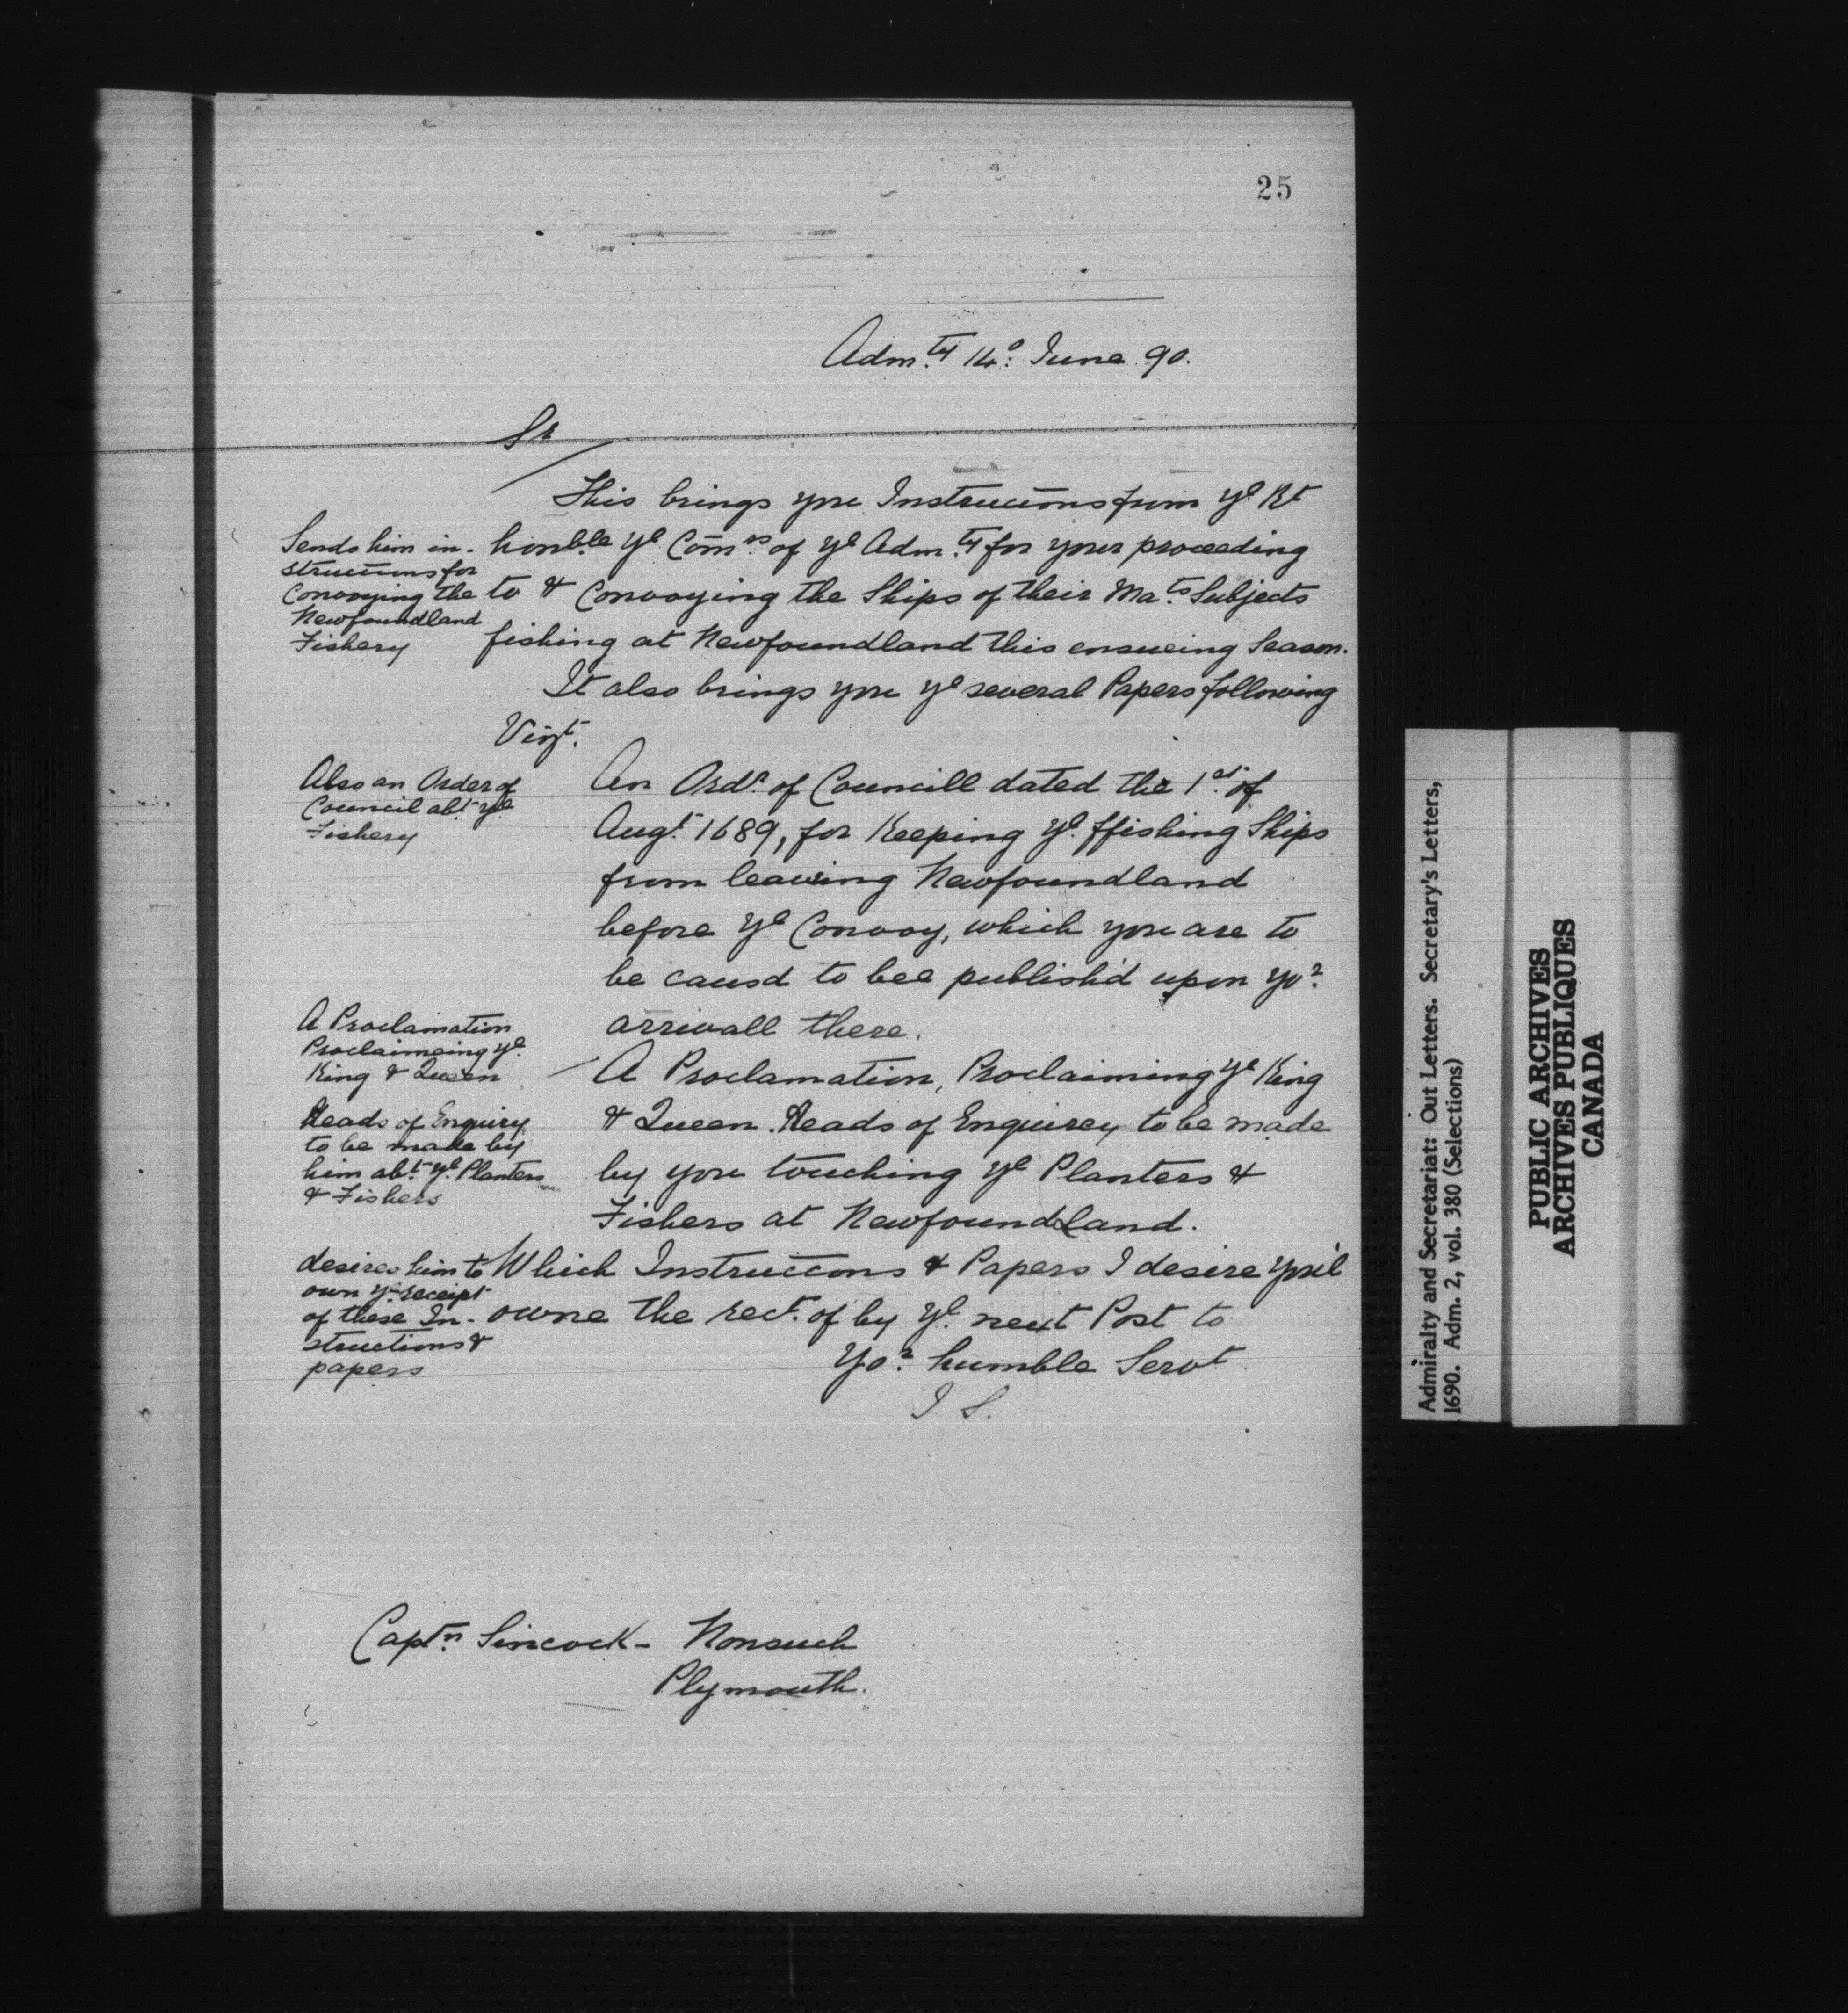 25
Adm.ty 14o: June 90.
Sr
This brings you Instructions from ye Rt
honble ye Com̄rs of ye Adm.ty for your proceeding
to & Convoying the Ships of their Mats Subjects
fishing at Newfoundland this ensueing Season.
It also brings you ye several Papers following
Vizt.
An Ordr. of Councill dated the 1st. of
Augt. 1689, for Keeping ye. ffishing Ships
from leaving Newfoundland
before ye Convoy, which you are to
be causd to bee publish'd upon yor.
arrivall there.
A Proclamation, Proclaiming ye King
& Queen. Heads of Enquirey to be made
by you touching ye Planters &
Fishers at Newfoundland.
Which Instruccons & Papers I desire you'l
owne the rect. of by ye. next Post to
Yor. humble Servt
J S.
Sends him in-
structions for
Convoying the
Newfoundland
Fishery
Also an Order of
Council abt. ye
Fishery
A Proclamation
Proclaimeing ye.
King & Queen
Heads of Enquiry
to be made by
him abt. ye. Planters
& Fishers
desires him to
own ye receipt
of these In-
structions &
papers
Captn. Sincock - Nonsuch
Plymouth.
Admiralty and Secretariat: Out Letters. Secretary's Letters,
1690. Adm. 2, vol. 380 (Selections)
PUBLIC ARCHIVES
ARCHIVES PUBLIQUES
CANADA